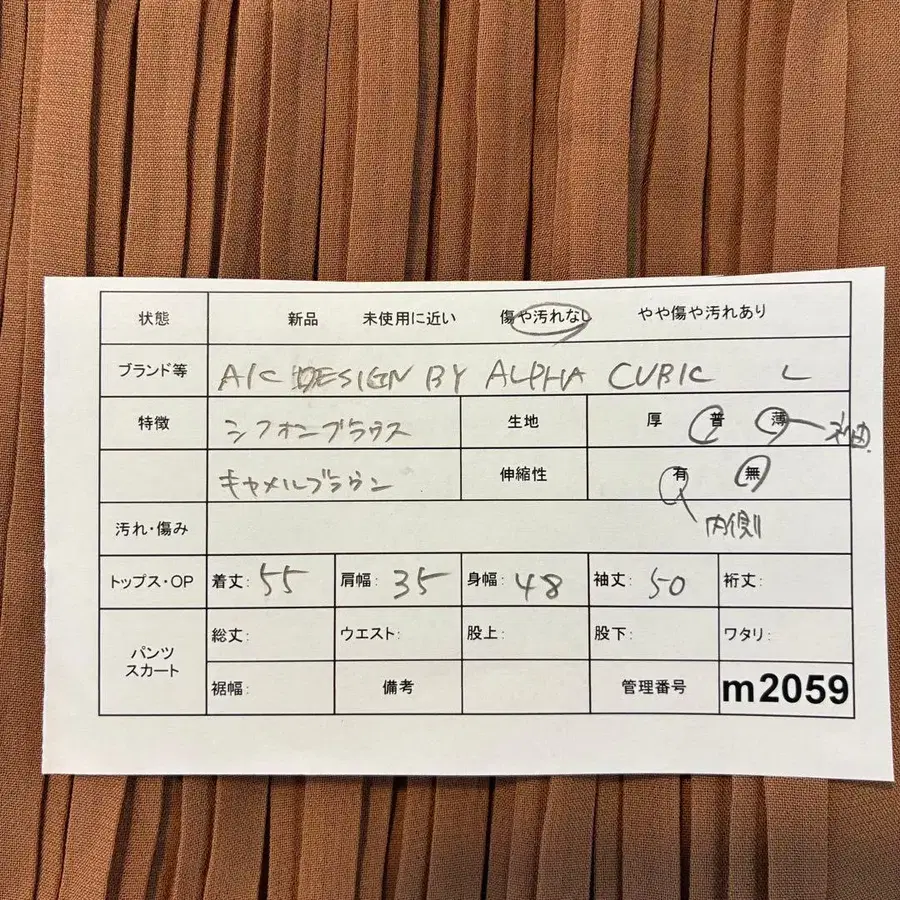 状態 新品 未使用に近い 傷や汚れなし やや傷や汚れあり
ブランド等 A/C DESIGN BY ALPHA CUBIC L
特徴 シフォンブラウス 生地 厚 普 薄
キャメルブラウン 伸縮性 有 無
内側
汚れ・傷み
トップス・OP 着丈: 55 肩幅: 35 身幅: 48 袖丈: 50 裄丈:
パンツ
スカート
総丈: ウエスト: 股上: 股下: ワタリ:
裾幅: 備考 管理番号 m2059